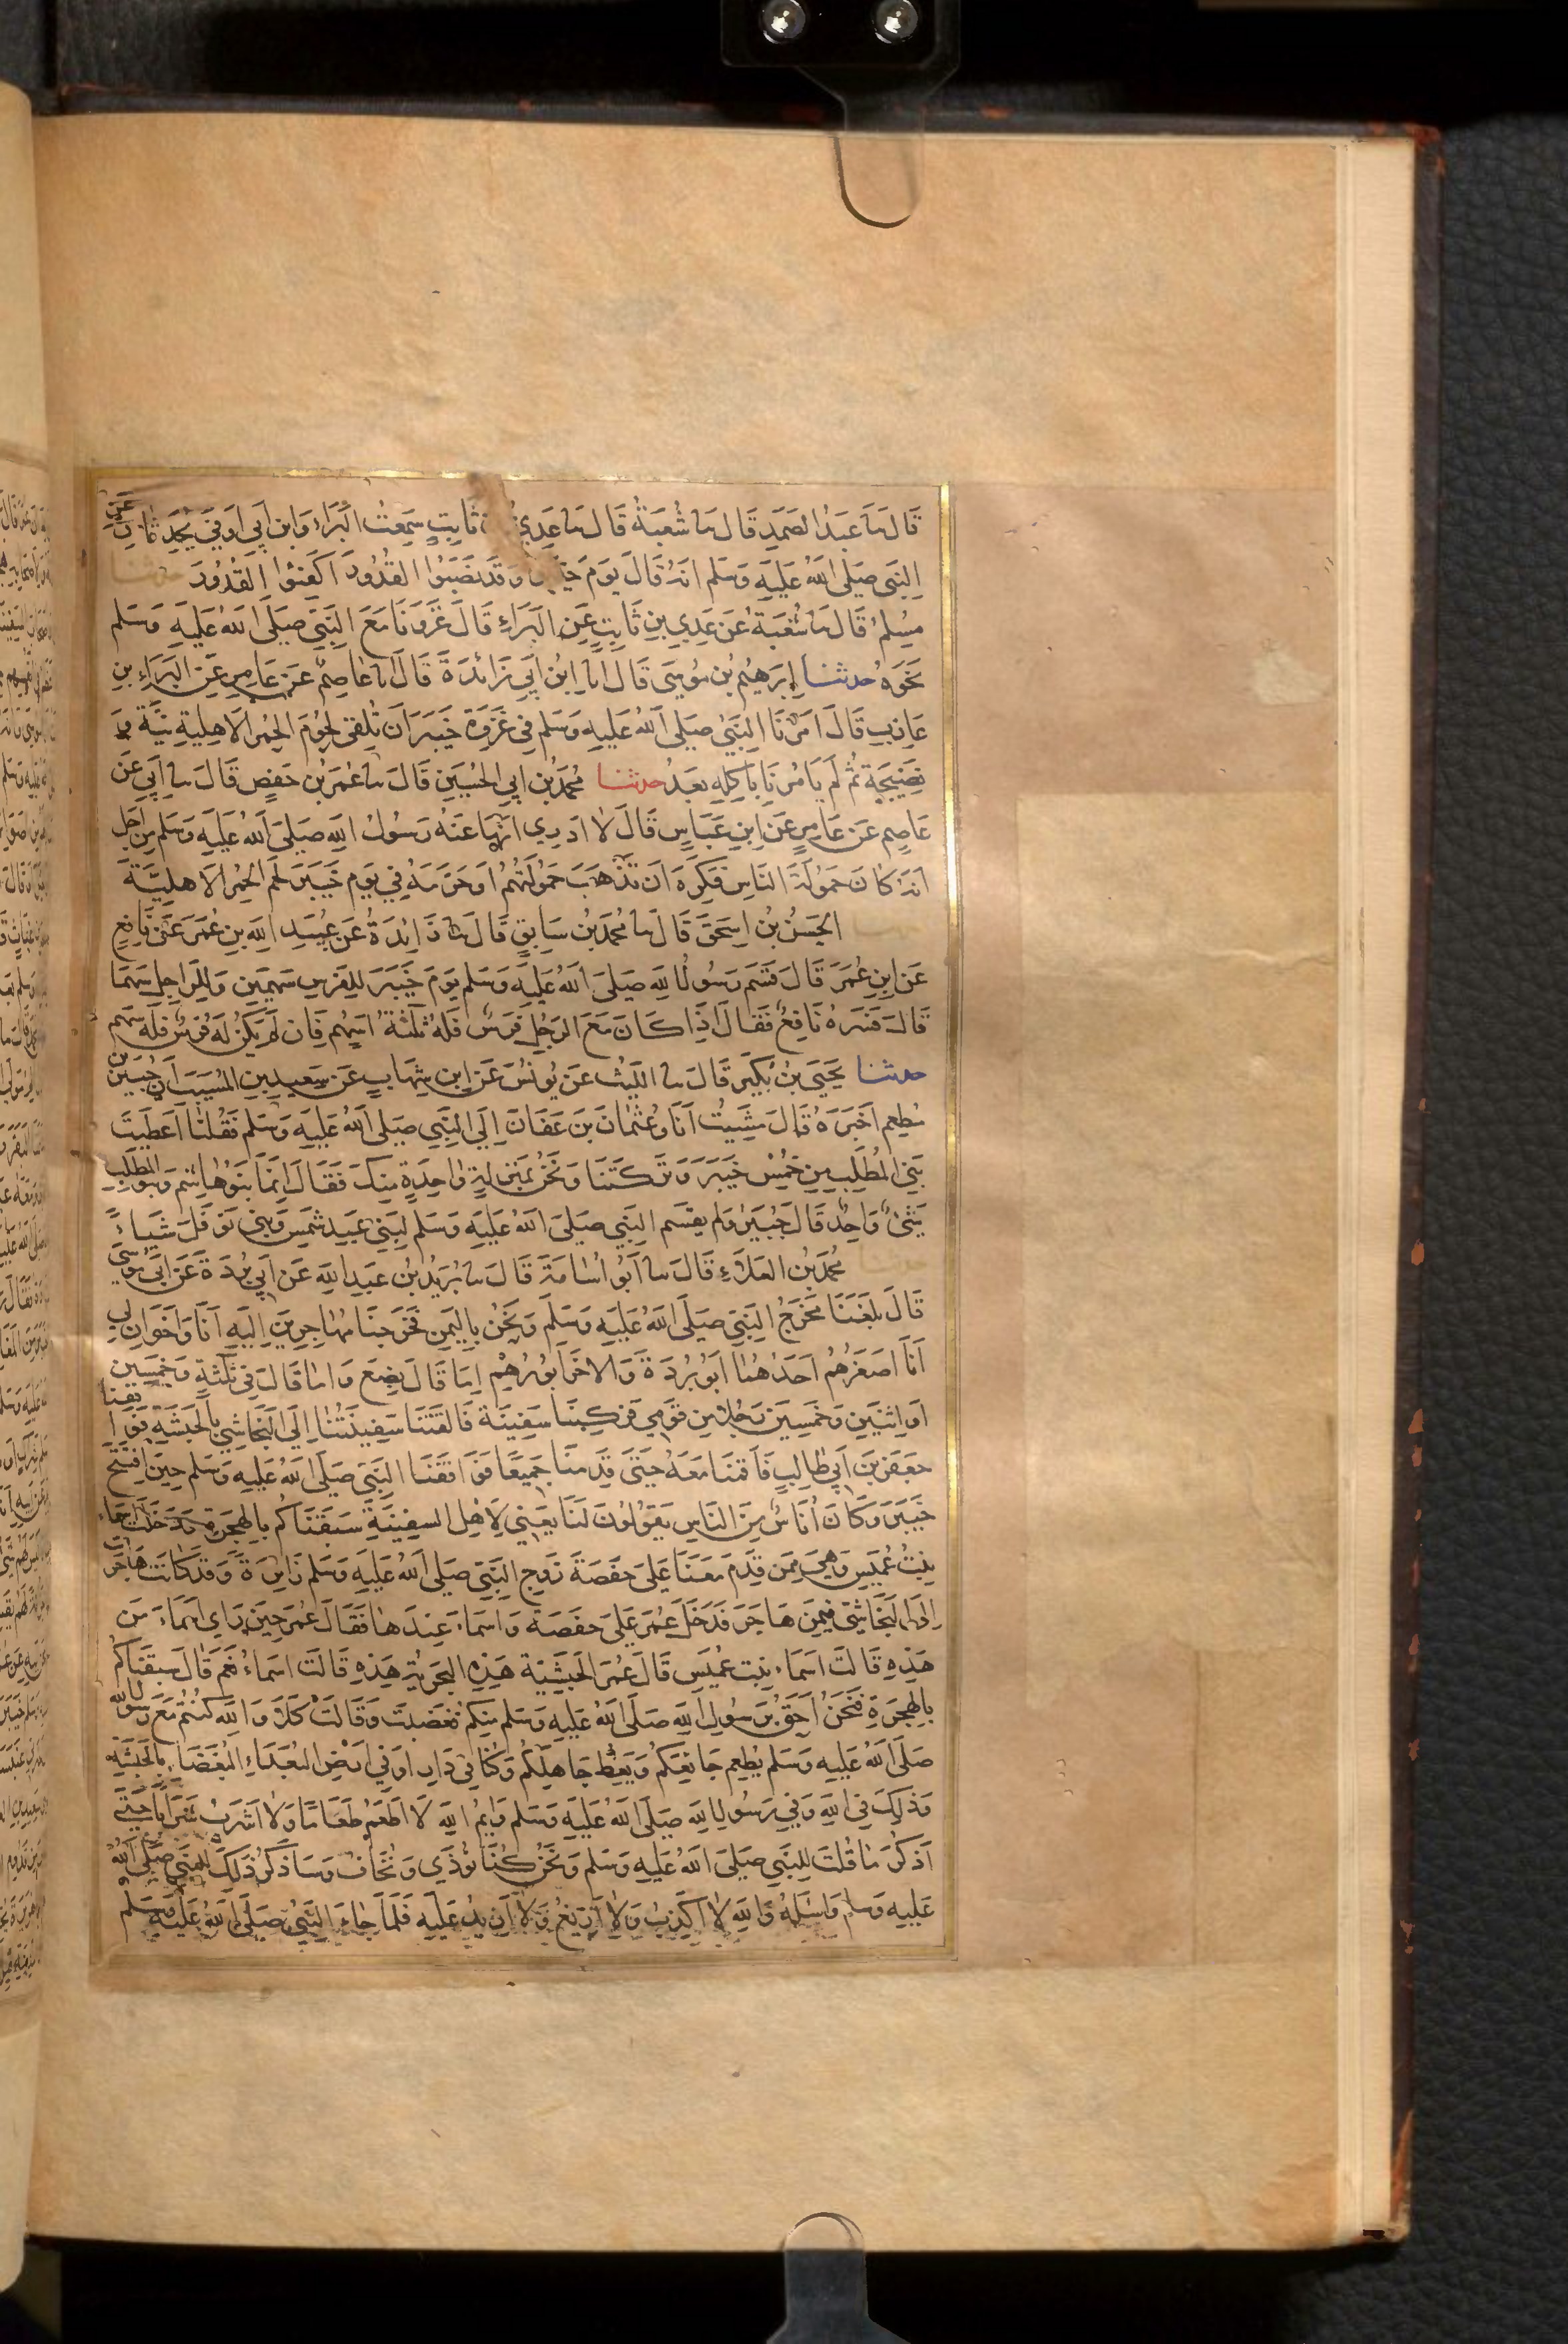 قَالَ ثنا عَبْدُ الصَّمَدِ قَالَ ثنا شُعْبَةُ قَالَ ثنا عَدِيُّ ثَابِتٍ سَمِعْتُ الْبَرَاءَ وَابنَ اَبِي اَوْفَى يُحَدِّثَانِ عَنِ
النَّبِي صَلى اللهُ عَلَيهِ وَسَلم انَّهُ قَالَ يَومَ وَقَد نَصَبُوا القُدُورَ اَكْفِئوُا القُدُورَ حدثنا
مُسْلِمٌ قَالَ ثنا شُعْبَةُ عَنْ عَدِي بنِ ثَابِتٍ عَنِ البَرَاءِ قَالَ غَزَونَا مَعَ النَّبِيِّ صَلَّى اللهُ عَلَيهِ وَسَلم
نَحْوَهُ حدثنا اِبرَهِيمُ بنُ مُوسَى قَالَ انا ابْنُ اَبِي زَائِدَةَ قَالَ انا عَاصِمٌ عَن عَامِرٍ عَنِ البَرَاءِ بنِ
عَازِبٍ قَالَ اَمَرَنَا النَّبِيُّ صَلى اللهُ عَلَيهِ وَسَلم فِي غَزوَةِ خَيبَرَ اَن نُلقِيَ لُحُومَ الحُمُرِ الاَهلِيةِ نِيَّةً وَ
نَضِيجَةً ثُمَّ لَم يَامُرنَا بِاَكلِهِ بَعدُ حدثنا مُحَمَّدُ بن ابِي الحُسَينِ قَالَ ثنا عُمَرُ بن حَفصٍ قَالَ ثنا اَبِي عَن
عَاصِمٍ عَن عَامِرٍ عَنِ ابنِ عَبَّاسٍ قَالَ لَا اَدرِي اَنَهَى عَنهُ رَسُولُ اللهِ صَلَى اللهُ عَلَيهِ وَسَلم مِن اَجلِ
اَنَّهُ كَانَ حَمُولَةَ النَّاسِ فَكَرِهَ اَن تَذهَبَ حَمُولَتُهُم اَو حَرَّمَهُ فِي يَومِ خَيبَرَ لَحمَ الحُمُرِ الاَهلِيَّةِ
الحَسَنُ بنُ اِسحَقَ قَالَ ثنا مُحَمَّدُ بنُ سَابِقٍ قَالَ ثنا زَائِدَةُ عَن عُبَيدِ اللهِ بنِ عُمَرَ عَن نَافِعٍ
عَن ابنِ عُمَرَ قَالَ قَسَمَ رَسُولُ اللهِ صَلَى اللهُ عَلَيهِ وَسَلم يَومَ خَيبَرَ لِلفَرَسِ سَهمَينِ وَللرَّاجِلِ سَهمًا
قَالَ فَسَّرَهُ نَافِعٌ فَقَالَ اِذَا كَانَ مَعَ الرَجُلِ فَرَسٌ فَلَهُ ثَلثَةُ اَسهُم فَاِن لَم يَكُن لَهُ فَرَسٌ فَلَهُ سَهم
حدثنا يَحيَى بنُ بُكَيرٍ قَالَ ثنا اللَّيثُ عَن يُونُسَ عَنِ ابنِ شِهَابٍ عَن سَعِيدِ بنِ المُسَيَّبِ اَنَّ جُبَيرَ بنَ
مُطعِم اَخبَرَهُ قَالَ مَشَيتُ اَنَا وَعُثمَانُ بنَ عَفَّانَ اِلَى النَّبِي صَلى اللهُ عَلَيهِ وَسَلم فَقُلنَا اَعطَيتَ
بَنِي المُطَّلِبِ مِن خُمُسِ خَيبَرَ وَتَرَكتَنَا وَنَحنُ بِمَنزِلَةٍ وَاحِدَةٍ مِنكَ فَقَالَ اِنَّمَا بَنُو هَاشِم وَبَنُو المطَّلِبِ
شَيْئٌ وَاحِدٌ قَالَ جُبَيرٌ وَلَم يَقسِم النَّبِي صَلَى اللهُ عَلَيهِ وَسَلم لِبَنِي عَبدِ شَمسٍ وَبَنِي نَوفَلٍ شَيأً
مُحَمَّدُ بنُ العَلَاءِ قَالَ ثنا اَبُو اُسَامَةَ قَالَ ثنا بُرَيدُ بنُ عَبدِ اللهِ عَن اَبِي بُردَةَ عَن اَبِي مُوسَى
قَالَ بَلَغَنَا مَخرَجُ النَّبِيِّ صَلَّى اللهُ عَلَيهِ وَسَلَّم وَنَحنُ بِاليَمَنِ فَخَرَجنَا مُهَاجِرِينَ اِلَيهِ اَنَا وَاَخَوَانِ لِي
اَنَا اَصغَرُهُم اَحَدُهُمَا اَبُو بُردَةَ وَالاخَرُ اَبُو رُهمٍ اِمَّا قَالَ بِضع وَاِمَّا قَالَ فِي ثَلثَةٍ وَخَمسِين
اَو اثنَينِ وَخَمسِينَ رَجُلًا مِن قَومِي فَرَكِبنَا سَفِينَة فَاَلقَتنَا سَفِينَتُنَا اِلَى النَّجَاشِيّ بِالحَبَشَةِ فَوَافَقنَا
جَعفَرَ بنَ اَبِي طَالِبٍ فَاَقَمنَا مَعَهُ حَتَّى قَدِمنَا جَمِيعًا فَوَافَقنَا النَّبِيَّ صَلَى اللهُ عَلَيهِ وَسَلم حِينَ افتَتَحَ
خَيبَرَ وَكَانَ اُنَاسٌ مِنَ النَّاسِ يَقُولُونَ لَنَا يَعنِي لِاَهلِ السفِينَةِ سَبَقنَاكُم بِالهِجرَة وَدَخَلَت اَسمَاء
بِنتُ عُمَيسٍ وَهِيَ مِمَّن قَدِمَ مَعَنَا عَلَى حَفصَةَ زَوجِ النَّبِيّ صَلَى اللهُ عَلَيهِ وَسَلم زَائِرَةً وَقَد كَانَت هَاجَرَت
اِلَى النَّجَاشِيّ فِيمَن هَاجَرَ فَدَخَلَ عُمَرُ عَلَى حَفصَةَ وَاَسمَاء عِندَهَا فَقَالَ عُمَرُ حِينَ رَاى اَسمَاءَ مَن
هَذِهِ قَالَت اَسمَاء بِنت عُمَيسٍ قَالَ عُمَرُ الحَبَشِيَّة هَذِهِ البَحرِيَّة هَذِهِ قَالَت اسمَاءُ نَعَم قَالَ سَبَقنَاكُم
بِالهِجرَةِ فَنَحنُ اَحَقُّ بِرَسُولِ اللهِ صَلَّى اللهُ عَلَيهِ وَسَلم مِنكُم فَغَضِبَت وَقَالَت كَلَّا وَاللهِ كُنتُم مَعَ رَسُولِ اللهِ
صَلَّى اللهُ عَلَيهِ وَسَلم يُطعِم جَائِعَكُم وَيَعِظُ جَاهِلَكُم وَكُنَّا فِي دَارِ اَو فِي اَرضِ البُعَدَاءِ البُغَضَاءِ بِالحَبَشَةِ
وَذَلِكَ فِي اللهِ وَفِي رَسُولِ اللهِ صَلَى اللهُ عَلَيهِ وَسَلم وَايمُ اللهِ لَا اَطعَمُ طَعَامًا وَلَا اَشرَبُ شَرَابًا حَتَّى
اَذكُرَ مَا قُلتَ لِلنَّبِي صَلَى اللهُ عَلَيهِ وَسَلم وَنَحنُ كُنَّا نُؤذَى وَنُخَافُ وَسَاَذكُرُ ذَلِكَ لِلنَّبِي صَلَى اللهُ
عَلَيهِ وَسَلم وَاَسئَلُهُ وَاللهِ لَا اَكذِبُ وَلَا اَزِيغُ وَلَا اَزِيدُ عَلَيهِ فَلَمَّا جَاءَ النَّبِيُّ صَلَى اللهُ عَلَيهِ وَسَلم